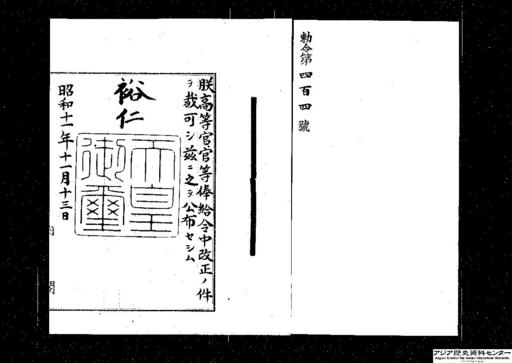 勅令第四百四號
朕高等官官等俸給令中改正ノ件
ヲ裁可シ茲ニ之ヲ公布セシム
裕仁
天皇
御璽
昭和十一年十一月十三日
内閣
アジア歴史資料センター
Japan Center for Asian Historical Records